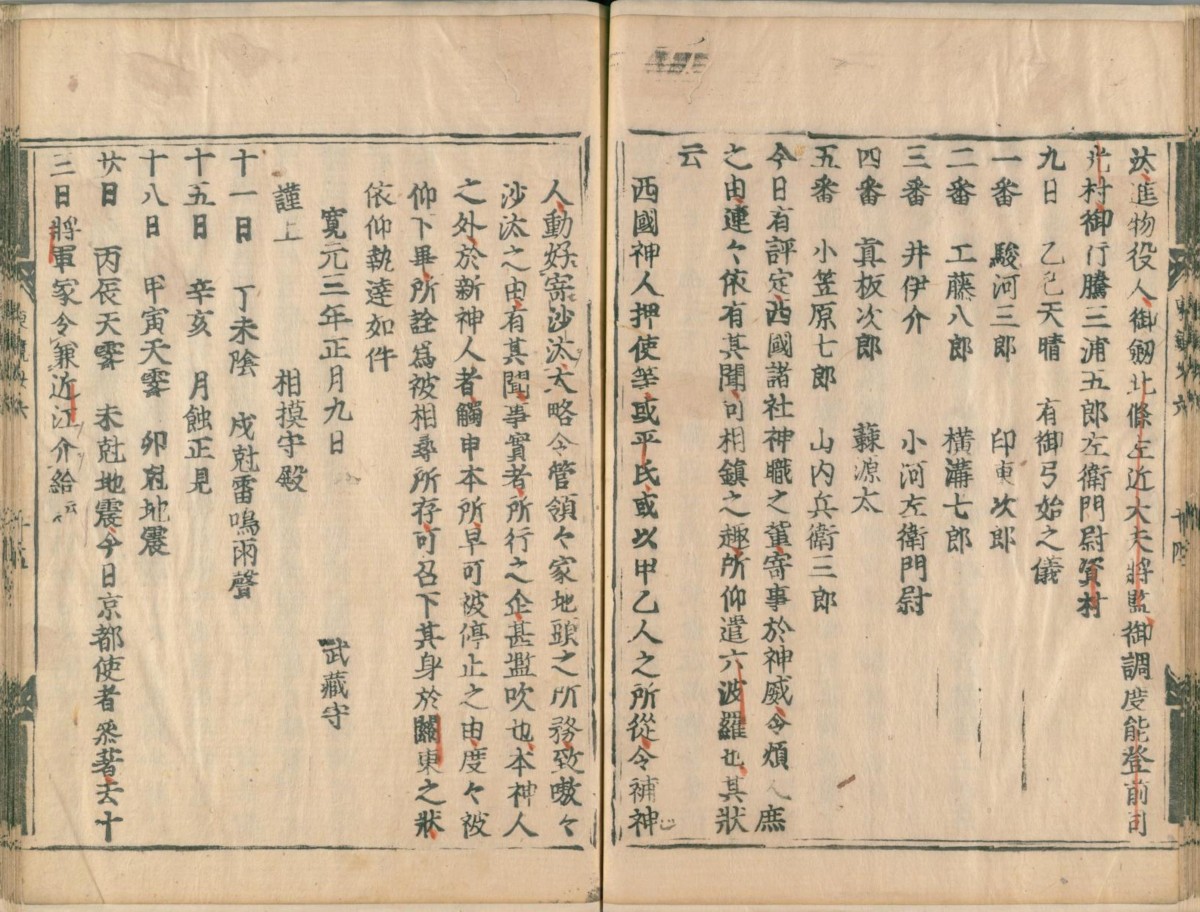 汰進物役人御劔北條左近大夫將監御調度能登前司
光村御行騰三浦五郎左衛門尉資村
九日　乙巳天晴　有御弓始之儀
一番　駿河三郎　印東次郎
二番　工藤八郎　橫溝七郎
三番　井伊介　小河左衛門尉
四番　真板次郎　蘇源太
五番　小笠原七郎　山内兵衛三郎
今日有評定西國諸社神職之輩寄事於神威令煩人庶
之由連々依有其聞可相鎮之趣所仰遣六波羅也其狀
云
西國神人押使等或平氏或以甲乙人之所從令補神
人動好寄沙汰大略令管領々家地頭之所務致嗷々
沙汰之由有其聞事實者所行之企甚濫吹也本神人
之外於新神人者觸申本所早可被停止之由度々被
仰下畢所詮為被相尋所存可召下其身於關東之狀
依仰執達如件
寛元三年正月九日　武藏守
謹上　相摸守殿
十一日　丁未陰　戌尅雷鳴雨聲
十五日　辛亥　月蝕正見
十八日　甲寅天霽　卯尅地震
廿日　丙辰天霽　未尅地震今日京都使者參著去十
三日將軍家令兼近江介給云々